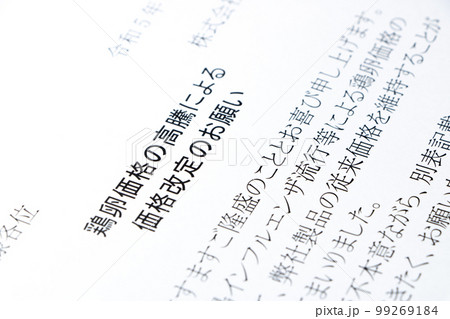 令和５年
株式会社
様各位
鶏卵価格の高騰による
価格改定のお願い
すますご隆盛のこととお喜び申し上げます。
インフルエンザ流行等による鶏卵価格の
、弊社製品の従来価格を維持することが
まいりました。
不本意ながら、別表記載
きたく、お願い
PIXTA
pixta.jp - 99269184